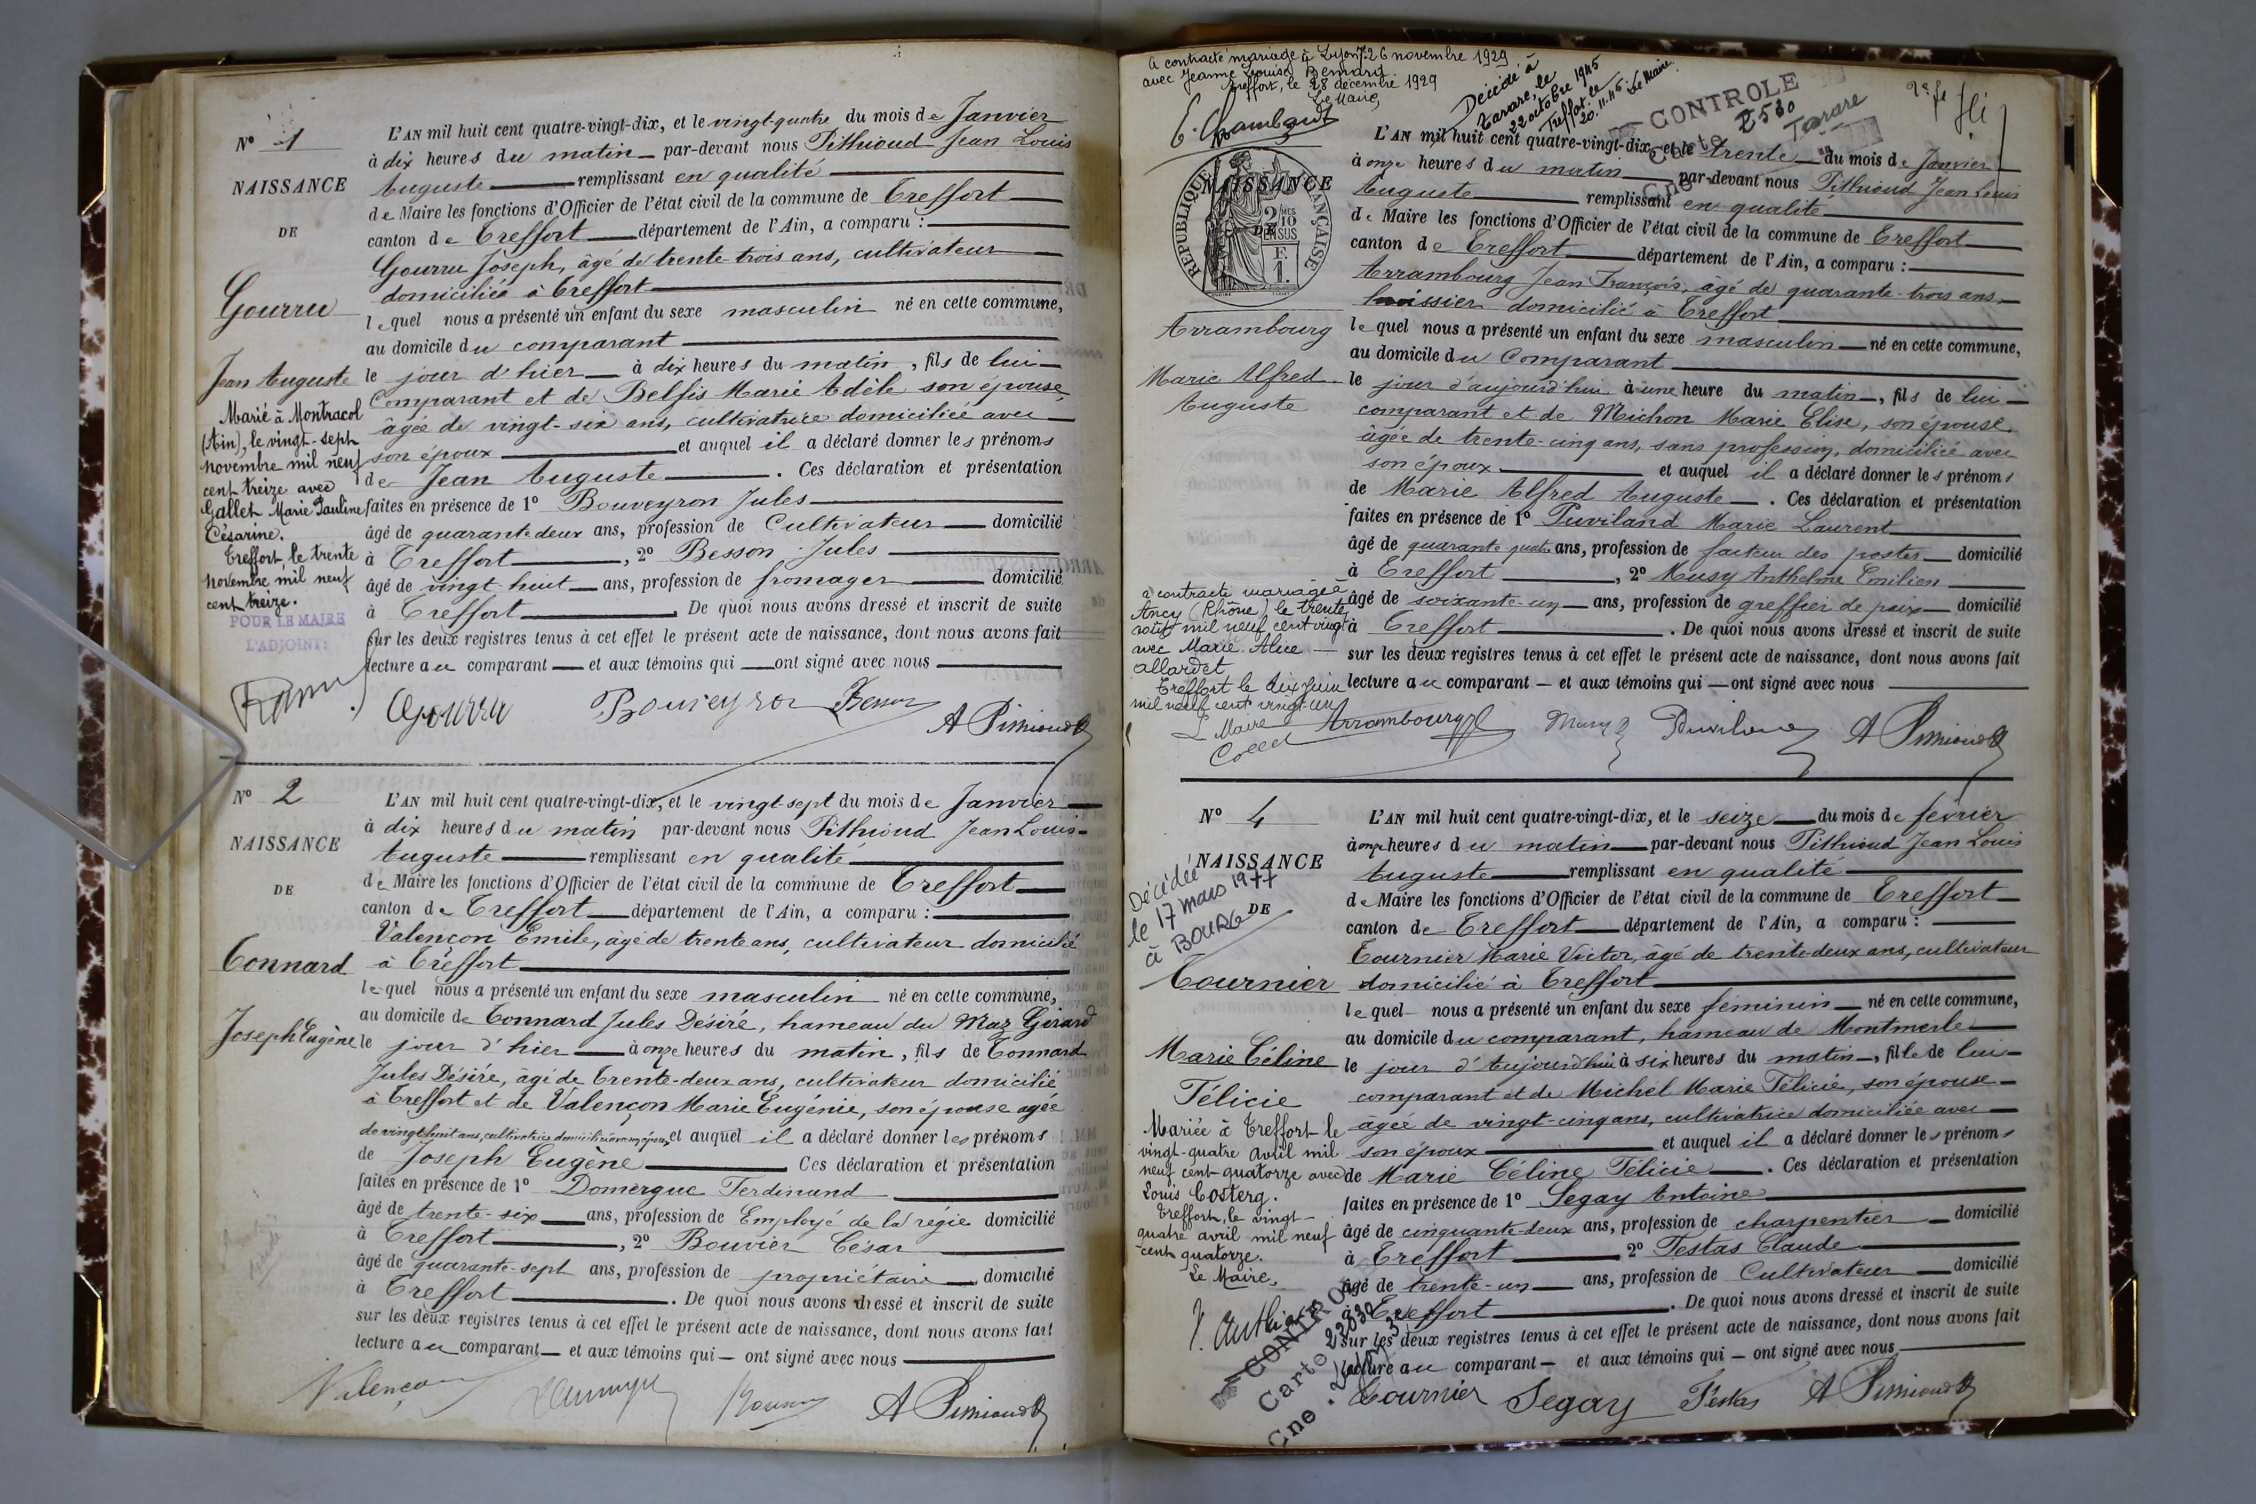 Nº 1
NAISSANCE
DE
Gourru
Jean Auguste
Marié à Montracol
(Ain), le vingt-sept
novembre mil neuf
cent treize avec
Gallet Marie Pauline
Césarine.
Treffort, le trente
novembre mil neuf
cent treize.
POUR LE MAIRE
L'ADJOINT:
L'AN mil huit cent quatre-vingt-dix, et le vingt-quatre du mois de Janvier
à dix heures du matin par-devant nous Pithioud Jean Louis
Auguste remplissant en qualité
de Maire les fonctions d'Officier de l'état civil de la commune de Treffort
canton de Treffort département de l'Ain, a comparu :
Gourru Joseph, âgé de trente-trois ans, cultivateur
domicilié à Treffort
lequel nous a présenté un enfant du sexe masculin né en cette commune,
au domicile du comparant
le jour d'hier à dix heures du matin, fils de lui
comparant et de Belfis Marie Adèle son épouse,
âgée de vingt-six ans, cultivatrice domiciliée avec
son époux et auquel il a déclaré donner les prénoms
de Jean Auguste. Ces déclaration et présentation
faites en présence de 1º Bouveyron Jules
âgé de quarante deux ans, profession de Cultivateur domicilié
à Treffort, 2º Besson Jules
âgé de vingt huit ans, profession de fromager domicilié
à Treffort. De quoi nous avons dressé et inscrit de suite
sur les deux registres tenus à cet effet le présent acte de naissance, dont nous avons fait
lecture au comparant et aux témoins qui ont signé avec nous
Gourru Bouveyron Besson
A Pithioud
Nº 2
NAISSANCE
DE
Tonnard
Joseph Eugène
L'AN mil huit cent quatre-vingt-dix, et le vingt-sept du mois de Janvier
à dix heures du matin par-devant nous Pithioud Jean Louis
Auguste remplissant en qualité
de Maire les fonctions d'Officier de l'état civil de la commune de Treffort
canton de Treffort département de l'Ain, a comparu :
Valençon Emile, âgé de trente ans, cultivateur domicilié
à Treffort
lequel nous a présenté un enfant du sexe masculin né en cette commune,
au domicile de Tonnard Jules Désiré, hameau du Maz Girard
le jour d'hier à onze heures du matin, fils de Tonnard
Jules Désiré, âgé de Trente-deux ans, cultivateur domicilié
à Treffort et de Valençon Marie Eugénie, son épouse agée
de vingt huit ans, cultivatrice domiciliée avec son époux et auquel il a déclaré donner les prénoms
de Joseph Eugène Ces déclaration et présentation
faites en présence de 1º Domergue Ferdinand
âgé de trente-six ans, profession de Employé de la régie domicilié
à Treffort, 2º Bouvier César
âgé de quarante-sept ans, profession de propriétaire domicilié
à Treffort. De quoi nous avons dressé et inscrit de suite
sur les deux registres tenus à cet effet le présent acte de naissance, dont nous avons fait
lecture au comparant et aux témoins qui ont signé avec nous
Valençon
A Pithioud
a contracté mariage à Lyon 7e 26 novembre 1929
avec Jeanne Louise Bernard
Treffort, le 28 décembre 1929
Le Maire,
Décédé à
Tarare, le
22 octobre 1945
Treffort, le
20.11.45. Le Maire.
CONTROLE
Carte 2530
Cne Tarare
RÉPUBLIQUE FRANÇAISE
2/10 MES
EN SUS
F.
1.
NAISSANCE
DE
Arrambourg
Marie Alfred
Auguste
a contracté mariage à
Ancy (Rhône) le trente
mil neuf cent vingt
avec Marie Alice
Allardet
Treffort le dix Juin
mil neuf cent vingt-un
L Maire
L'AN mil huit cent quatre-vingt-dix, et le trente du mois de Janvier
à onze heures du matin par-devant nous Pithioud Jean Louis
Auguste remplissant en qualité
de Maire les fonctions d'Officier de l'état civil de la commune de Treffort
canton de Treffort département de l'Ain, a comparu :
Arrambourg Jean François, âgé de quarante-trois ans,
huissier domicilié à Treffort
lequel nous a présenté un enfant du sexe masculin né en cette commune,
au domicile du Comparant
le jour d'aujourd'hui à une heure du matin, fils de lui
comparant et de Michon Marie Elise, son épouse
âgée de trente-cinq ans, sans profession, domiciliée avec
son époux et auquel il a déclaré donner les prénoms
de Marie Alfred Auguste. Ces déclaration et présentation
faites en présence de 1º Puviland Marie Laurent
âgé de quarante quatre ans, profession de facteur des postes domicilié
à Treffort, 2º Musy Anthelme Emilien
âgé de soixante-un ans, profession de greffier de paix domicilié
à Treffort. De quoi nous avons dressé et inscrit de suite
sur les deux registres tenus à cet effet le présent acte de naissance, dont nous avons fait
lecture au comparant et aux témoins qui ont signé avec nous
Arrambourg Musy Puviland A Pithioud
Nº 4
NAISSANCE
DE
Décédée
le 17 mars 1977
à BOURG
Tournier
Marie Céline
Félicie
Mariée à Treffort le
vingt-quatre avril mil
neuf cent quatorze avec
Louis Costerg.
Treffort, le vingt-
quatre avril mil neuf
cent quatorze.
Le Maire,
CONTROLE
Carte 22830
Cne
L'AN mil huit cent quatre-vingt-dix, et le seize du mois de février
à onze heures du matin par-devant nous Pithioud Jean Louis
Auguste remplissant en qualité
de Maire les fonctions d'Officier de l'état civil de la commune de Treffort
canton de Treffort département de l'Ain, a comparu :
Tournier Marie Victor, âgé de trente-deux ans, cultivateur
domicilié à Treffort
lequel nous a présenté un enfant du sexe féminin né en cette commune,
au domicile du comparant, hameau de Montmerle
le jour d'Aujourd'hui à six heures du matin, fille de lui
comparant et de Michel Marie Félicie, son épouse
âgée de vingt-cinq ans, cultivatrice domiciliée avec
son époux et auquel il a déclaré donner les prénoms
de Marie Céline Félicie. Ces déclaration et présentation
faites en présence de 1º Segay Antoine
âgé de cinquante-deux ans, profession de charpentier domicilié
à Treffort 2º Testas Claude
âgé de trente-un ans, profession de Cultivateur domicilié
à Treffort. De quoi nous avons dressé et inscrit de suite
sur les deux registres tenus à cet effet le présent acte de naissance, dont nous avons fait
lecture au comparant et aux témoins qui ont signé avec nous
Tournier Segay Testas A Pithioud